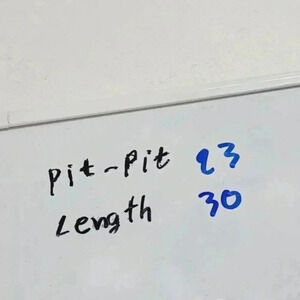 Pit-Pit 23
Length 30